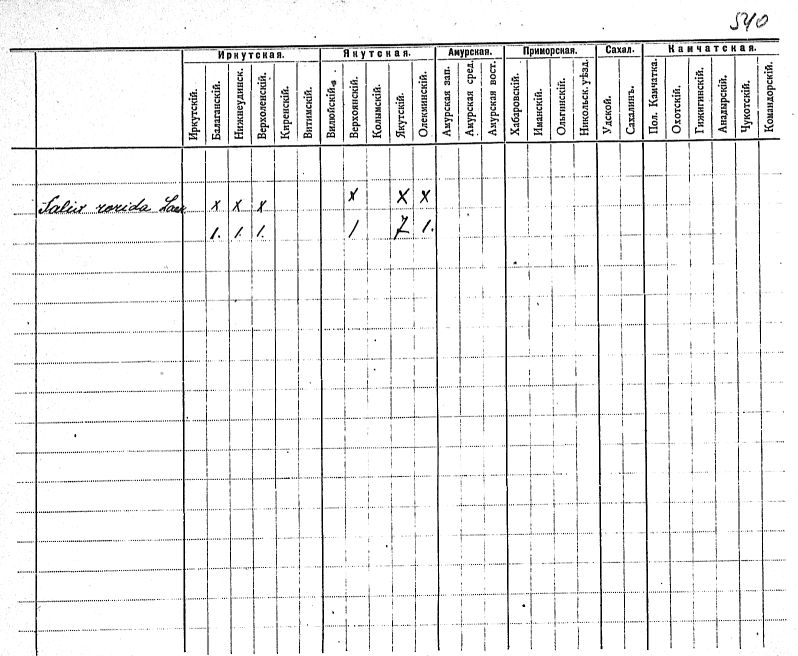 540
Иркутская. Якутская. Амурская. Приморская. Сахал. Камчатская.
Иркутскій. Балаганскій. Нижнеудинск. Верхоленскій. Киренскій. Витимскій. Вилюйскій. Верхоянскій. Колымскій. Якутскій. Олекминскій. Амурская зап. Амурская сред. Амурская вост. Хабаровскій. Иманскій. Ольгинскій. Никольск. уѣзд. Удской. Сахалинъ. Пол. Камчатка. Охотскій. Гижигинскій. Анадырскій. Чукотскій. Командорскій.
Salix rorida Lax x x x x x x
1. 1. 1. 1 7 1.